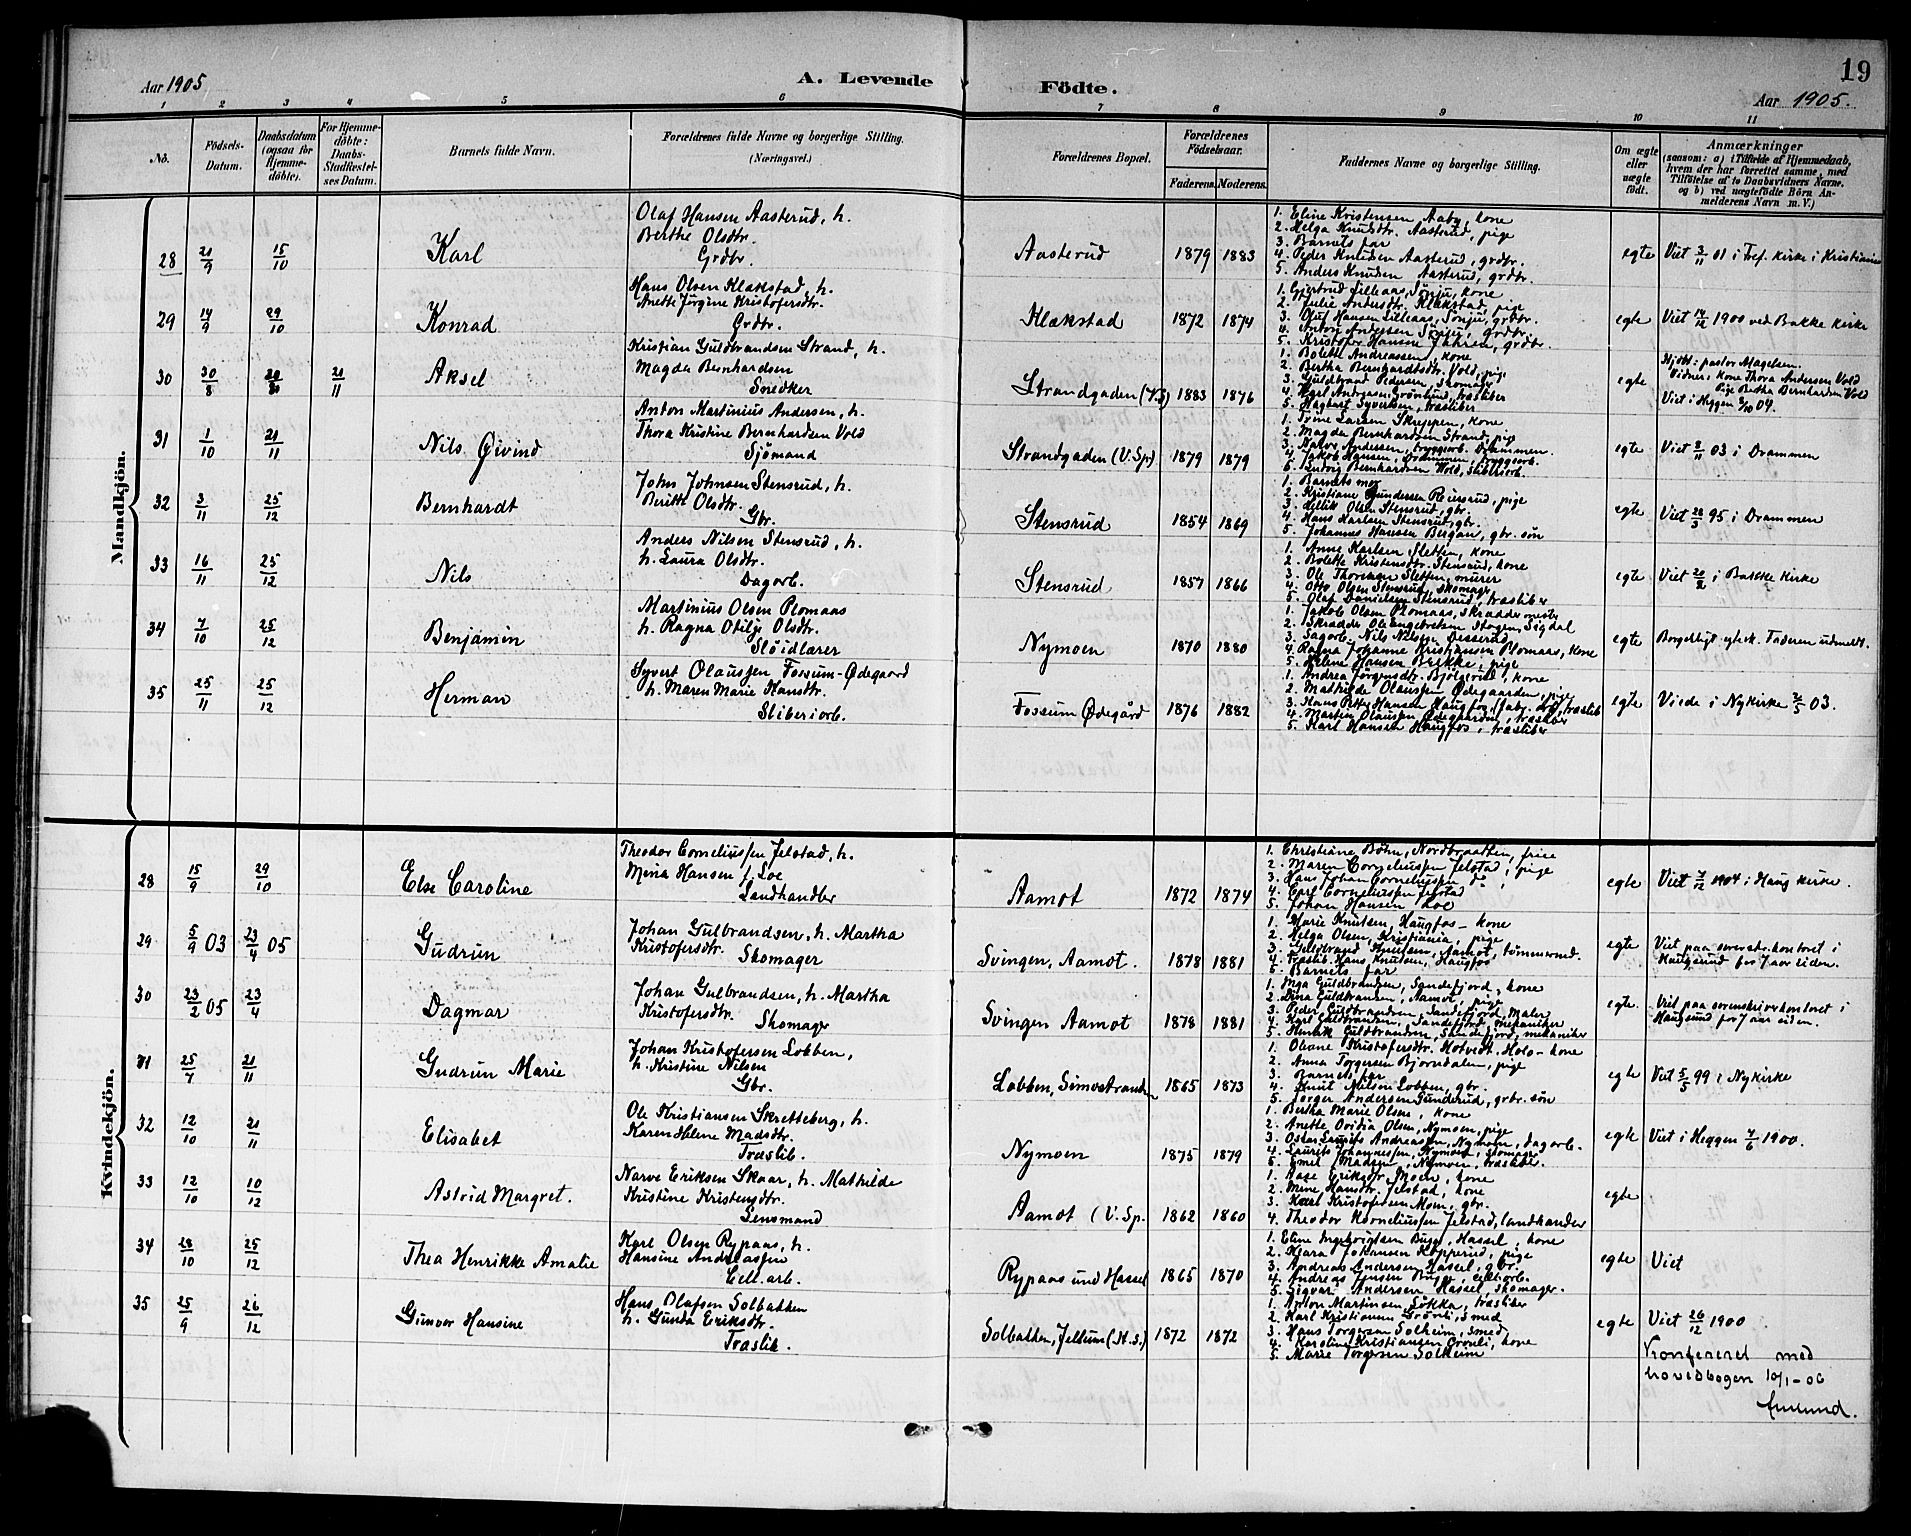 19
Aar 1905
A. Levende Födte.
Aar 1905.
1 2 3 4 5 6 7 8 9 10 11
No.
Födsels-Datum.
Daabsdatum (ogsaa for Hjemmedöbte).
For Hjemmedöbte: Daabs-Stadfæstelses Datum.
Barnets fulde Navn.
Forældrenes fulde Navne og borgerlige Stilling. (Næringsvei.)
Forældrenes Bopæl.
Forældrenes Födselsaar.
Faderens. Moderens.
Faddernes Navne og borgerlige Stilling.
Om ægte eller uægte födt.
Anmærkninger
(saasom: a) i Tilfælde af Hjemmedaab, hvem der har forrettet samme, med Tilföielse af to Daabsvidners Navne. og b) ved uægtefödte Börn Anmelderens Navn m. V.)
Mandkjön.
28 21/9 15/10 Karl
Olaf Hansen Aasterud, h.
Berthe Olsdtr.
Grdbr.
Aasterud 1879 1883
1. Eline Kristensen, Aaby, kone
2. Helga Knudsdtr. Aasterud, pige
3. Barnets far
4. Peder Knudsen Aasterud, grdbr.
5. Anders Knudsen Aasterud, grdbr.
egte Viet 3/11 01 i Tref. kirke i Kristiania
29 14/9 29/10 Konrad
Hans Olsen Klækstad, h.
Anette Jörgine Kristofersdtr.
Grdbr.
Klækstad 1872 1874
1. Gjertrud Lilleaas, Sönju, kone
2. Julie Andersdtr. Klækstad, pige
3. Oluf Hansen Lilleaas, Sönju, grdbr.
4. Anton Andersen Sönju, grdbr.
5. Kristofer Hansen Ihhren, grdbr.
egte Viet 14/12 1900 ved Bakke kirke
30 30/8 21/11 Aksel
Kristian Guldbrandsen Strand, h.
Magda Bernhardsen
Snedker
Strandgaden 1883 1876
1. Bolette Andreassen, kone
2. Bertha Bernhardsdtr. Vold, pige
3. Guldbrand Pedersen, Skomager
4. Karl Andersen Grönlund, træsliber
5. Hagbart Syversen, træsliber
egte Hjdöbt: pastor Magelsen.
Vidner: kone Thora Andersen Vold
Pige Bertha Bernhardsen Vold
Viet i Heggen 9/10 04.
31 1/10 21/11 Nils Öivind
Anton Martinius Andersen, h.
Thora Kristine Bernhardsen Vold
Sjömand
Strandgaden (V. Sp.) 1879 1879
1. Tovne Larsen Skreppen, kone
2. Magda Bernhardsen Strand
3. Narve Andersen, bryggerarb. Drammen.
4. Jakob Hansen, Drammen, bryggerarb.
5. Ludvig Bernhardsen Vold, sliberiarb.
egte Viet 8/11 03 i Drammen
32 3/11 25/12 Bernhardt
John Johnsen Stensrud, h.
Beritte Olsdtr.
Gbr.
Stensrud 1854 1869
1. Barnets mor
2. Kristiane Gundersen Reiersrud, pige
3. Hellik Olsen Stensrud, gbr.
4. Hans Karlsen Stensrud, gbr.
5. Johannes Hansen Bergan, gbr. sön
egte Viet 28/3 95 i Drammen
33 16/11 25/12 Nils
Anders Nilsen Stensrud, h.
h. Laura Olsdtr.
Dagarb.
Stensrud 1857 1866
1. Anne Karlsen Sletten, kone
2. Bolette Kristensdtr. Stensrud, kone
3. Ole Thorsen Sletten, murer
4. Otto Olsen Stensrud, Skomager
5. Olaf Danielsen Stensrud, træsliber
egte Viet 20/2 i Bakke Kirke
34 7/10 25/12 Benjamin
Martinius Olsen Plomaas
h. Ragna Otilje Olsdtr.
Slöidlærer
Nymoen 1870 1880
1. Jakob Olsen Plomaas, Skræddermester
2. Skrædder Ole Engebretsen Stogen, Sigdal
3. Sagarb. Nils Nilsen Desserud
4. Ragna Johanne Kristiansen Plomaas, kone
5. Helene Hansen Brekke, pige
egte Borgerligt egtesk. Faderen udmeldt.
35 25/11 25/12 Herman
Syvert Olaussen Fossum-Ödegaard
h. Maren Marie Hansdtr.
Sliberiarb.
Fossum Ödegård 1876 1882
1. Andrea Jörgensdtr. Bjölgerud, kone
2. Mathilde Olaussen Ödegaarden, pige
3. Hans Petter Hansen Haugfos, træslib
4. Martin Olaussen Ödegaarden, træsliber
5. Karl Hansen Haugfos, træsliber
egte Viede i Nykirke 3/5 03.
Kvindekjön.
28 15/9 29/10 Else Caroline
Theodor Corneliussen Jelstad, h.
Mina Hansen f. Loe
Landhandler
Aamot 1872 1874
1. Christiane Böhn, Nordbraatten, frue
2. Maren Corneliussen Jelstad, pige
3. Hans Johan Corneliussen do
4. Carl Corneliussen Jelstad
5. Johan Hansen Loe
egte Viet 7/12 1904 i Haug kirke.
29 5/9 03 23/4 05 Gudrun
Johan Gulbrandsen, h. Martha
Kristofersdtr.
Skomager
Svingen, Aamot. 1878 1881
1. Marie Knutsen Haugfos - kone
2. Helga Olsen, Kristiania, pige
3. Guldbrand Knutsen, Aamot, tömmermd.
4. Træslib. Hans Knutsen, Haugfos
5. Barnets far
egte Viet paa sorenskr. kontoret i
Haugsund for 7 aar siden.
30 23/2 05 23/4 Dagmar
Johan Gulbrandsen, h. Martha
Kristofersdtr.
Skomager
Svingen Aamot 1878 1881
1. Inga Guldbrandsen, Sandefjord, kone
2. Dina Guldbrandsen, Aamot, pige
3. Peder Guldbrandsen, Sandefjord, Maler
4. Karl Guldbrandsen, Sandefjord, Mekaniker
5. Henrik Guldbrandsen, Sandefjord, mekaniker
egte Viet paa sorenskriverkontoret i
Haugsund for 7 aar siden.
31 25/7 21/11 Gudrun Marie
Johan Kristofersen Lobben,
h. Kristine Nilsen
Gbr.
Lobben, Simostranden 1865 1873
1. Oleane Kristofersdtr. Hotvedt, Holo - kone
2. Anna Torgersen Bjorndalen, pige
3. Barnets far
4. Knut Nilsen Lobben, gbr.
5. Torger Andersen Gunderud, grbr. sön
egte Viet 5/5 99 i Nykirke
32 12/10 21/11 Elisabet
Ole Kristiansen Skretteberg, h.
Karen Helene Madsdtr.
Træslib.
Nymoen 1875 1879
1. Bertha Marie Olsen, kone
2. Anette Ovidia Olsen, Nymoen, pige
3. Oskar Laurits Andreassen, Nymoen, dagarb.
4. Laurits Johannessen, Nymoen, skomager
5. Emil Madsen, Nymoen, træslibe.
egte Viet i Heggen 4/6 1900.
33 12/10 10/12 Astrid Margret.
Narve Eriksen Skaar, h. Mathilde
Kristine Kristensdtr.
Lensmand
Aamot (V. Sp. 1862 1860
1. Aase Eriksdtr. Moen, kone
2. Mine Hansdtr. Jelstad, kone
3. Karl Kristofersen Moen, gbr.
4. Theodor Korneliussen Jelstad, landhandler
egte
34 28/10 25/12 Thea Henrikke Amalie
Karl Olsen Rypaas, h.
Hansine Andreassen
Cell. arb.
Rypaas und Hassel 1865 1870
1. Eline Ingebrigtsen Bugge, Hassel, kone
2. Klara Johansen Kopperud, pige
3. Andreas Andersen Hassel, gbr.
4. Andreas Jensen Bugge, cell. arb.
5. Sigvar Andersen Hassel, Skomager.
egte Viet
35 25/9 26/12 Gunvor Hansine
Hans Olafsen Solbakken
h. Gunda Eriksdtr.
Træslib.
Solbakken, Jellum (N. S.) 1872 1872
1. Anton Martinsen Løkka, træsliber
2. Karl Kristiansen Grönli, Smed
3. Hans Torgersen Solheim, smed
4. Karoline Kristiansen Grönli, kone
5. Marie Torgersen Solheim
egte Viet 26/12 1900
Konfereret med
hovedbogen 10/1-06